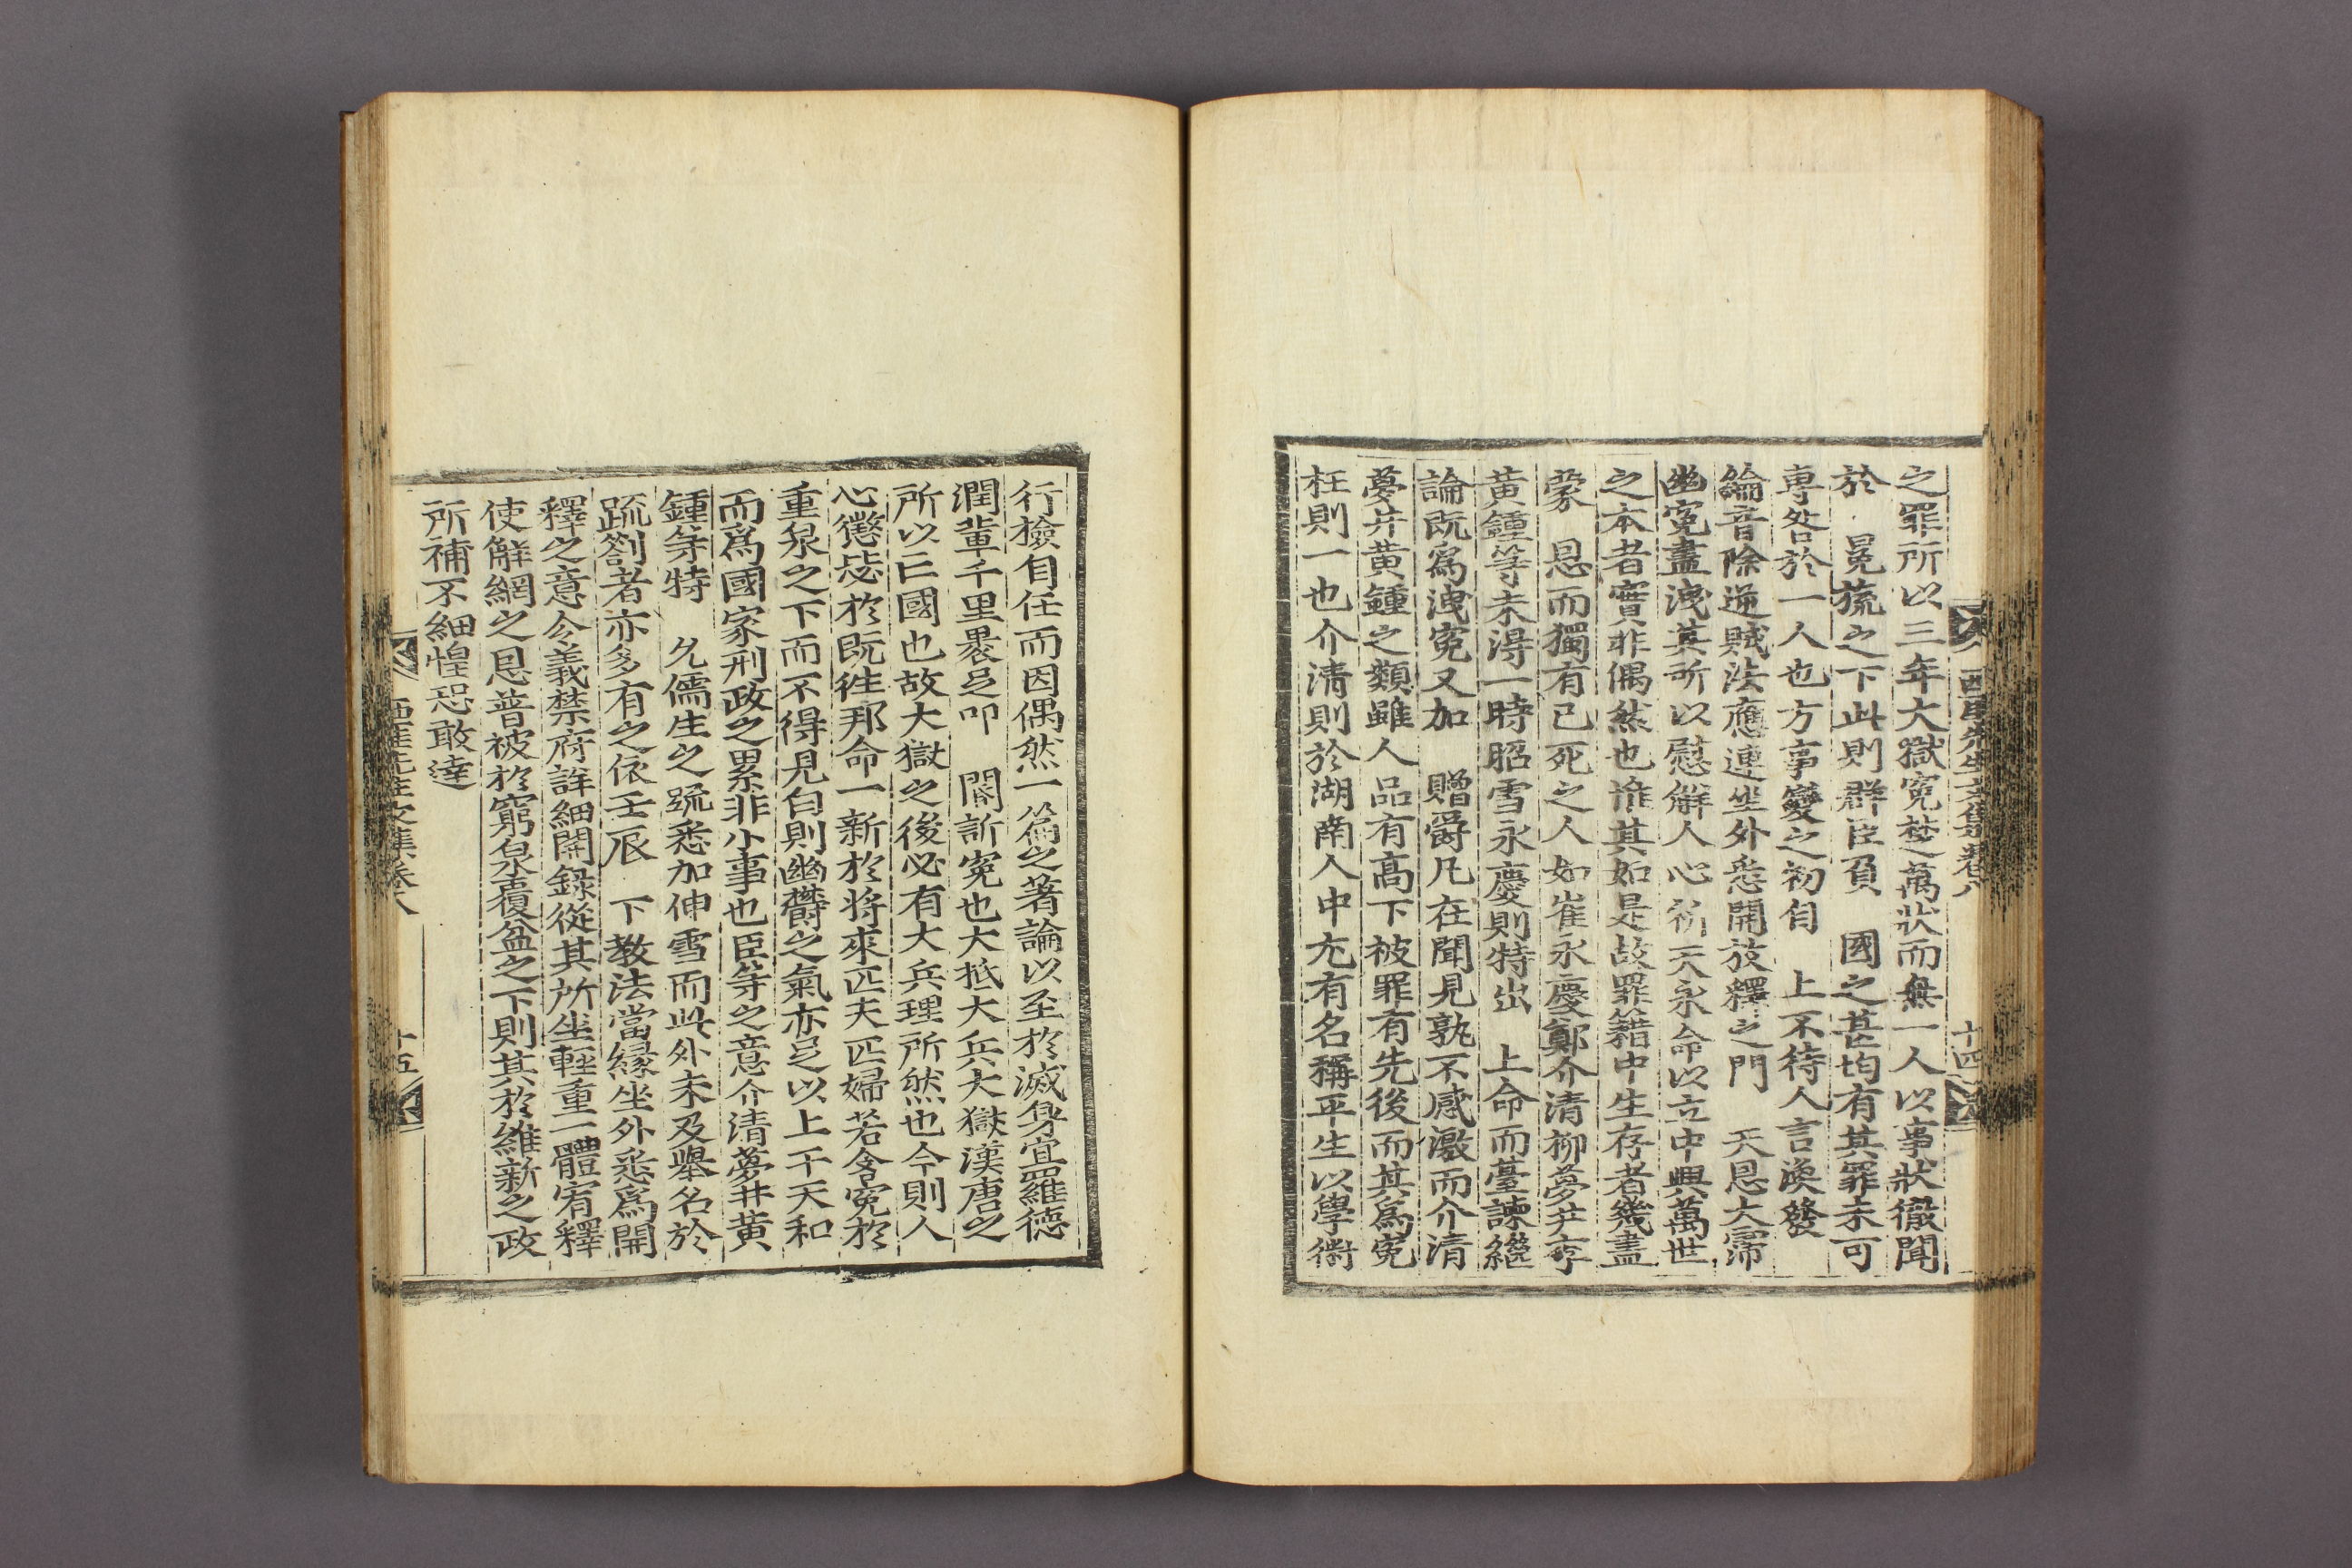 西厓先生文集卷八
十四
之罪所以三年大獄寃楚萬狀而無一人以事狀徹聞
於 冕旒之下此則群臣負 國之甚均有其罪未可
專咎於一人也方事變之初自 上不待人言渙發
綸音除逆賊法應連坐外悉開放釋之門 天恩大霈
幽寃盡洩其所以慰解人心祈天永命以立中興萬世
之本者實非偶然也惟其如是故罪籍中生存者幾盡
蒙 恩而獨有已死之人如崔永慶鄭介清柳夢井李
黃鍾等未得一時昭雪永慶則特出 上命而臺諫繼
論既爲洩寃又加 贈爵凡在聞見孰不感激而介清
夢井黃鍾之類雖人品有高下被罪有先後而其爲寃
枉則一也介清則於湖南人中尢有名稱平生以學術
行檢自任而因偶然一篇之著論以至於滅身宜羅德
潤輩千里褁足叩 閽訴寃也大抵大兵大獄漢唐之
所以亡國也故大獄之後必有大兵理所然也今則人
心懲毖於既徃邦命一新於將來匹夫匹婦若含寃於
重泉之下而不得見白則幽欝之氣亦足以上干天和
而爲國家刑政之累非小事也臣等之意介清夢井黃
鍾等特 允儒生之疏悉加伸雪而此外未及舉名於
疏劄者亦多有之依壬辰 下教法當緣坐外悉爲開
釋之意令義禁府詳細開錄從其所坐輕重一體宥釋
使解網之恩普被於窮泉覆盆之下則其於維新之政
所補不細惶恐敢達
西厓先生文集卷八
十五